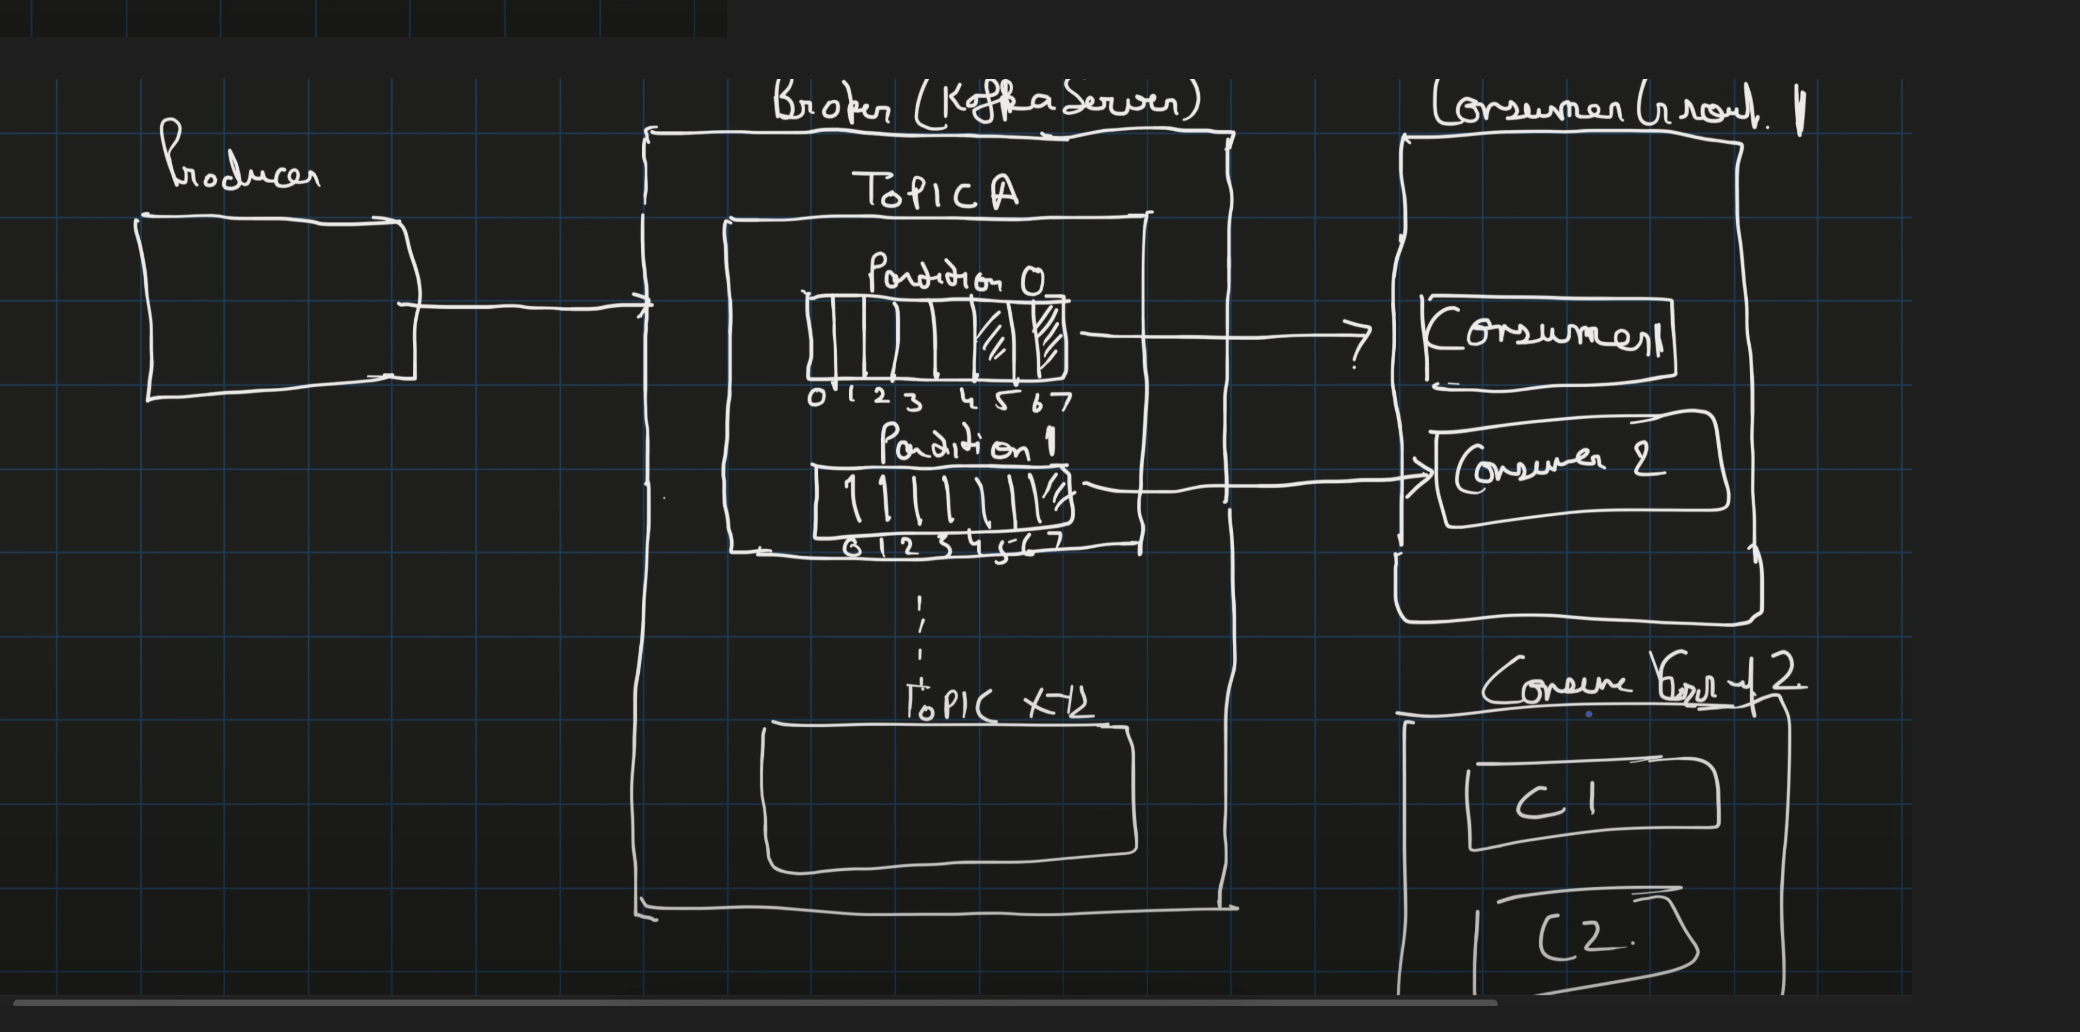 Producer
Broker (Kafka Server)
TOPIC A
Partition 0
0 1 2 3 4 5 6 7
Partition 1
0 1 2 3 4 5 6 7
TOPIC
Consumer Group 1
Consumer 1
Consumer 2
2
C1
C2.